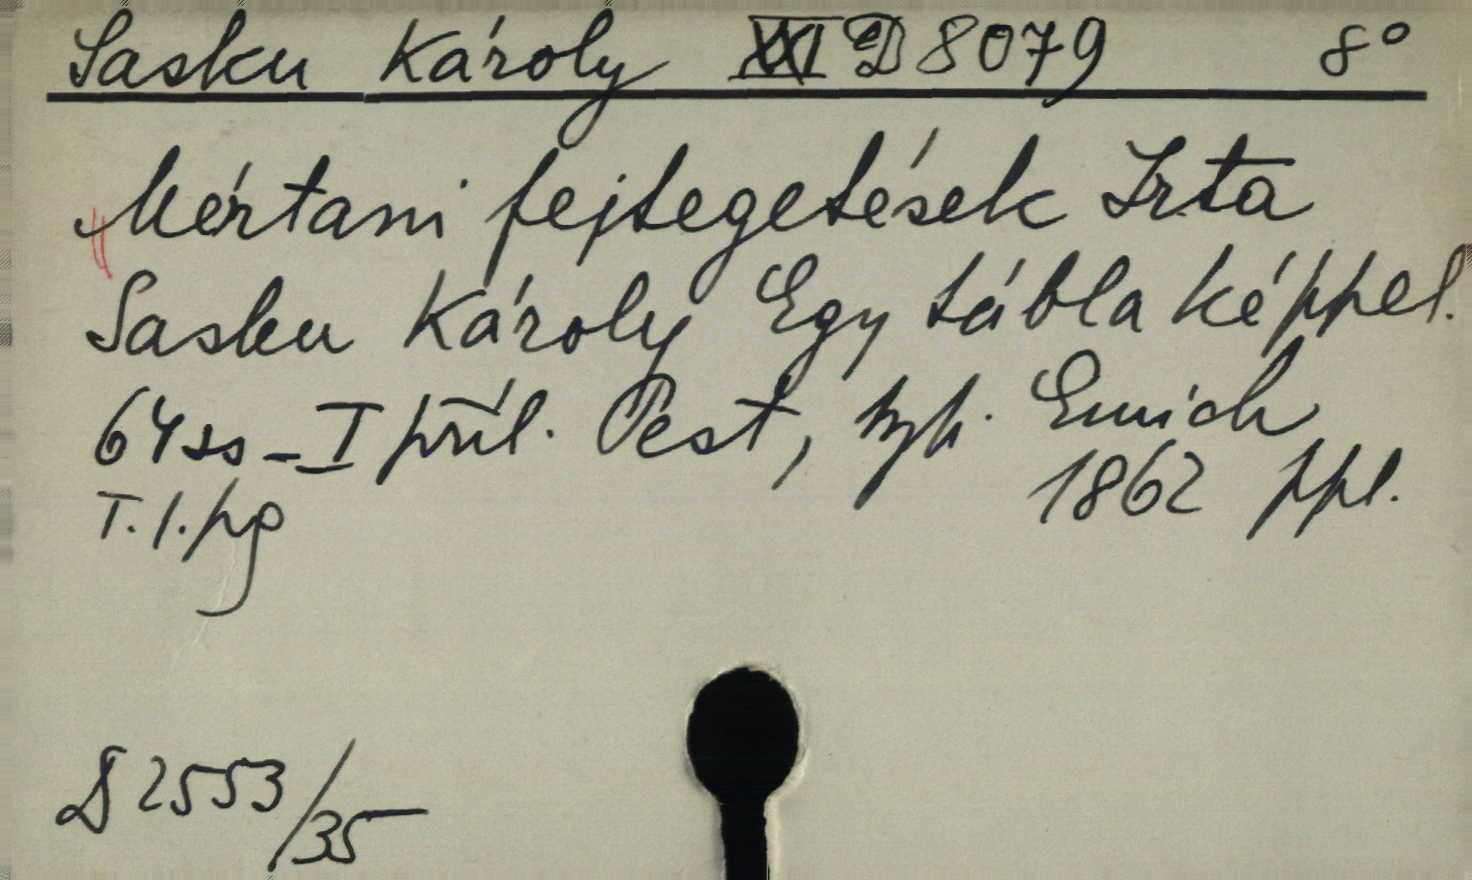 Sasku Károly XXI D 8079 8°
Mértani fejtegetések Irta
Sasku Károly Egy tábla képpel.
64 ss - I příl. Pest, Emich
1862 ppl.
T. 1. pg
D 2553/35